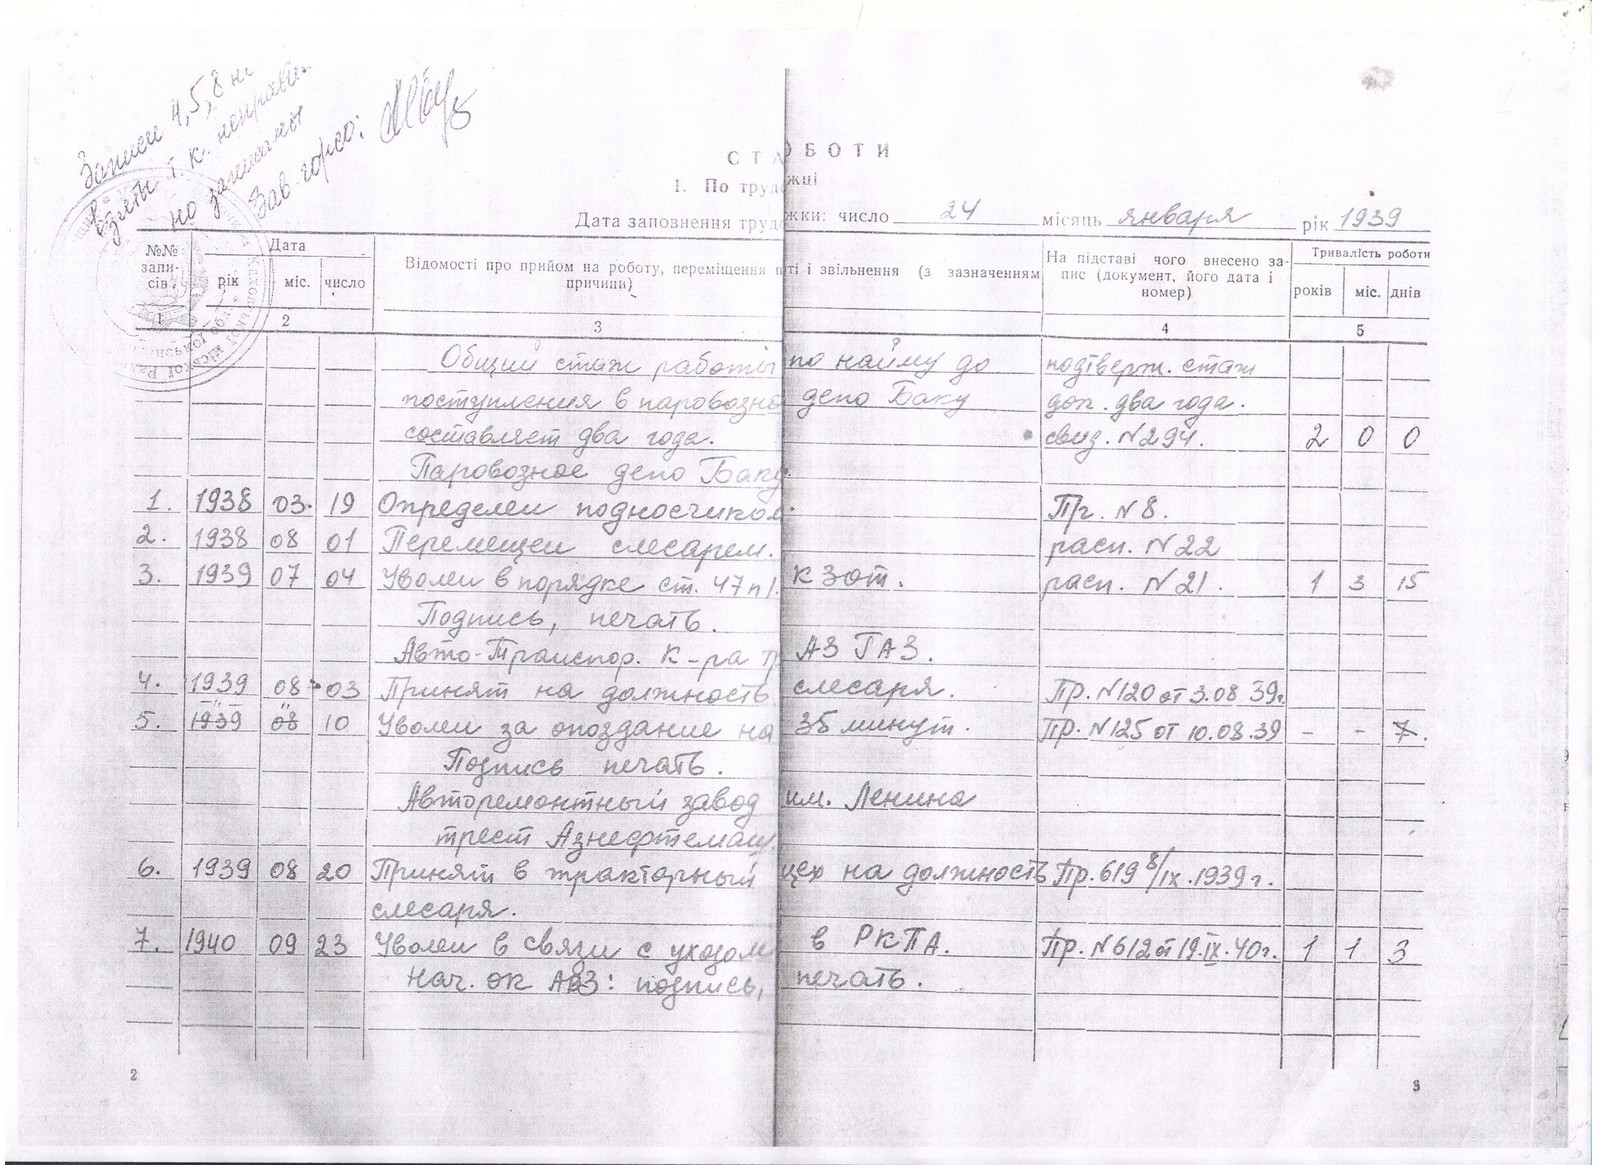 Записи 4, 5, 8 не
взяты т. к. неправиль
но записаны
Зав. горсо:
СТА ОБОТИ
1. По труд жці
Дата заповнення труд жки: число 24 місяць января рік 1939
№№ запи- сів Дата Відомості про прийом на роботу, переміщення п ті і звільнення (з зазначенням причини) На підставі чого внесено за- пис (документ, його дата і номер) Тривалість роботи
рік міс. число років міс. днів
1 2 3 4 5
Общий стаж работы по найму до подтверж. стаж
поступления в паровозно депо Баку док. два года.
составляет два года. свид. N294. 2 0 0
Паровозное депо Баку.
1. 1938 03. 19 Определен подносчиком. Пр. N8.
2. 1938 08 01 Перемещен слесарем. расп. N22
3. 1939 07 04 Уволен в порядке ст. 47 п1. КЗот. расп. N21. 1 3 15
Подпись, печать.
Авто-Транспор. К-ра Т АЗ ГАЗ.
4. 1939 08 03 Принят на должность слесаря. Пр. N120 от 3.08 39г.
5. 1939 08 10 Уволен за опоздание на 35 минут. Пр. N125 от 10.08.39 - - 7.
Подпись печать.
Авторемонтный завод им. Ленина
трест Азнефтемаш.
6. 1939 08 20 Принят в тракторный цех на должность Пр. 619 8/IX.1939г.
слесаря.
7. 1940 09 23 Уволен в связи с уходом в РКПА. Пр. N612 от 19.IX.40г. 1 1 3
Нач. ОК АВЗ: подпись, печать.
2 3